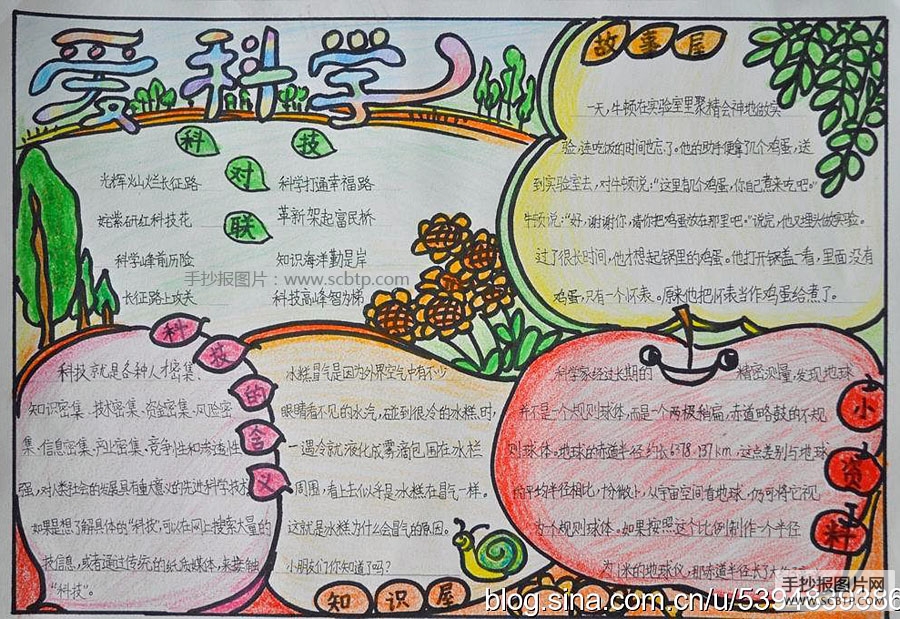 爱科学
科技
对联
光辉灿烂长征路
科学打通幸福路
姹紫研红科技花
革新架起富民桥
科学峰前历险
知识海洋勤是岸
长征路上攻关
科技高峰智为梯
手抄报图片：www.scbtp.com
故事屋
一天，牛顿在实验室里聚精会神地做实
验，连吃饭的时间也忘了。他的助手便拿了几个鸡蛋，送
到实验室去，对牛顿说："这里有几个鸡蛋，你自己煮来吃吧。"
牛顿说："好，谢谢你，请你把鸡蛋放在那里吧。"说完，他又埋头做实验。
过了很长时间，他才想起锅里的鸡蛋。他打开锅盖一看，里面没有
鸡蛋，只有一个怀表。原来他把怀表当作鸡蛋给煮了。
科技的含义
科技就是各种人才密集、
知识密集、技术密集、资金密集、风险密
集、信息密集、产业密集、竞争性和渗透性
强，对人类社会的发展具有重大意义的先进科学技术
如果是想了解具体的"科技"，可以在网上搜索大量的
技信息，或者通过传统的纸质媒体，来接触
"科技"。
冰糕冒气是因为外界空气中有不少
眼睛看不见的水汽，碰到很冷的冰糕时，
一遇冷就液化成雾滴包围在冰糕
周围，看上去似乎是冰糕在冒气一样。
这就是冰糕为什么会冒气的原因。
小朋友们你知道了吗？
知识屋
科学家经过长期的 精密测量，发现地球
并不是一个规则球体，而是一个两极稍扁，赤道略鼓的不规
则球体。地球的赤道半径约长6378.137km，这点差别与地球
的平均半径相比，十分微小，从宇宙空间看地球，仍可将它视
为个规则球体。如果按照这个比例制作一个半径
为1米的地球仪，那赤道半径
小资料
手抄报图片网
WWW.SCBTP.COM
blog.sina.com.cn/u/5394839086